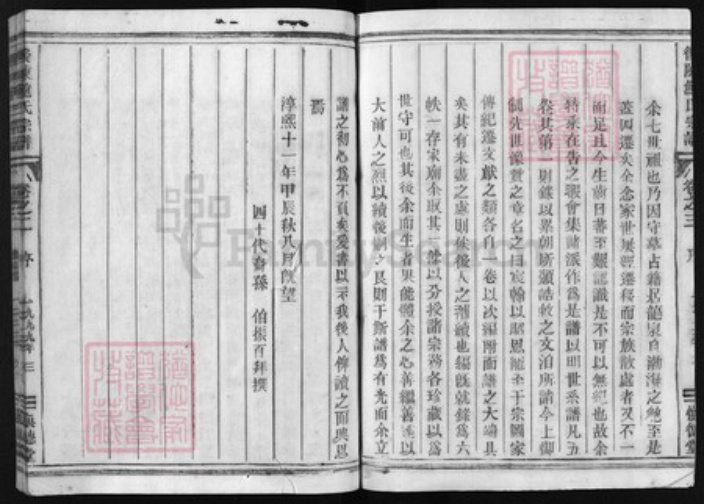 余七世祖也乃因守墓占籍居龍泉自渤海之鮑至是
蓋四遷矣余念家世屢經遷移而宗族散處者又不一
而足且今生齒日蕃至艱認識是不可以無紀也故余
特承在告之暇會集諸派作為是譜以明世系譜凡五
卷其第一則錄以累朝所頒誥敕之文泊所請今上御
制先世像贊之章名之曰宸翰以昭恩寵至于宗圖家
傳紀遷文獻之類各自一卷以次編附而譜之大端具
矣其有未盡之處則俟後人之補續也編既就錄為六
帙一存家廟余取其 餘以分授諸宗務各珍藏以為
世守可也其後余而生者果能體余之心善繼善述以
大前人之烈以續後嗣之艮則于斯譜為有光而余立
譜之初心為不負矣爰書以示我後人俾讀之而興思
焉
淳熙十一年甲辰秋八月既望
四十代裔孫 伯振百拜撰
鮑氏宗譜
卷之三 序
一九九四年
三
俱德堂